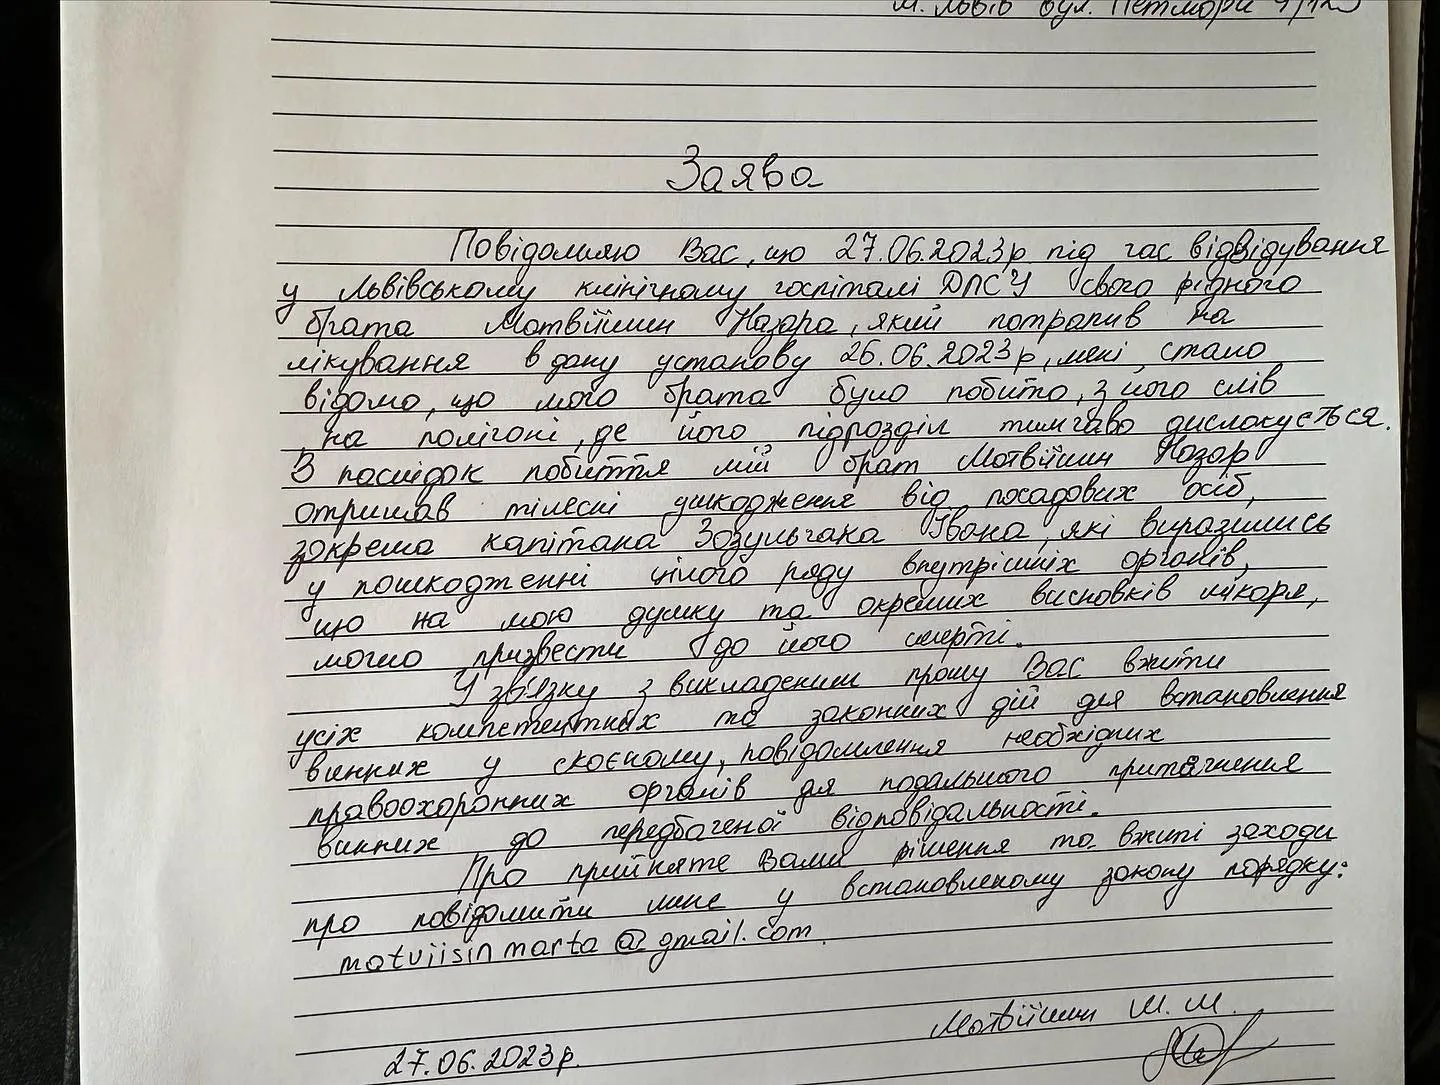 м. Львів вул. Петлюри
Заява
Повідомляю Вас, що 27.06.2023р під час відвідування
у Львівському клінічному госпіталі ДПСУ свого рідного
брата Матвіїшин Назара, який потрапив на
лікування в дану установу 26.06.2023р, мені стало
відомо, що мого брата було побито, з його слів
на полігоні, де його підрозділ тимчаво дислокується.
В наслідок побиття мій брат Матвіїшин Назар
отримав тілесні ушкодження від посадових осіб,
зокрема капітана Зозульчака Івана, які виразились
у пошкодженні цілого ряду внутрішніх органів,
що на мою думку та окремих висновків лікаря,
могло призвести до його смерті.
У зв'язку з викладеним прошу Вас вжити
усіх компетентних та законних дій для встановлення
винних у скоєному, повідомлення необхідних
правоохоронних органів для подальшого притягнення
винних до передбаченої відповідальності.
Про прийняте Вами рішення та вжиті заходи
про повідомити мене у встановленому закону порядку:
matviisinmarta@gmail.com.
Матвіїшин М. М.
27.06.2023р.